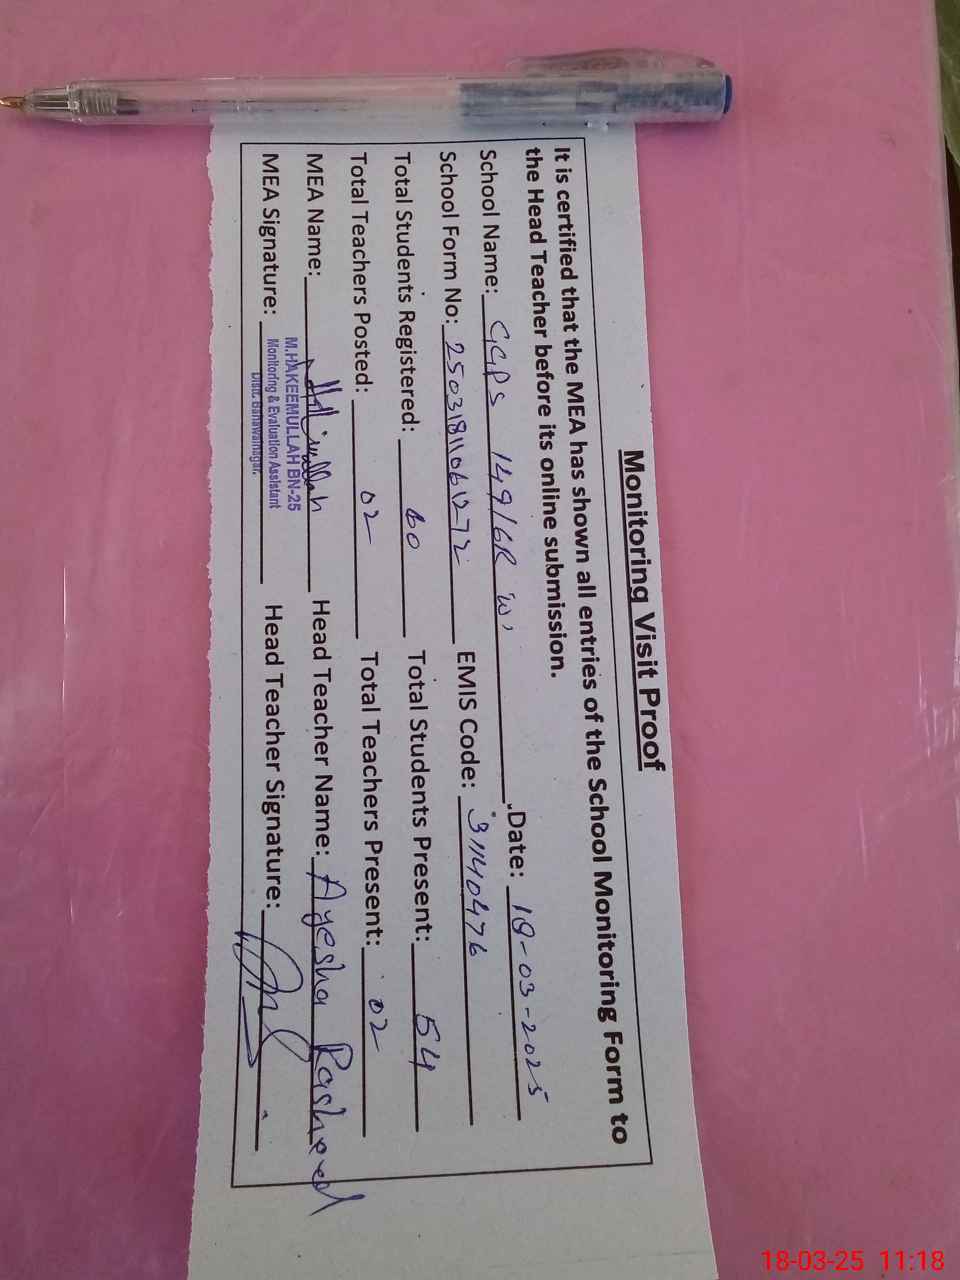 Monitoring Visit Proof
It is certified that the MEA has shown all entries of the School Monitoring Form to
the Head Teacher before its online submission.
School Name: GGPS 149/6R 'W' Date: 18-03-2025
School Form No: EMIS Code: 31140476
Total Students Registered: 60 Total Students Present: 54
Total Teachers Posted: 02 Total Teachers Present: 02
MEA Name: Head Teacher Name: Ayesha Rasheed
MEA Signature: Head Teacher Signature:
M.HAKEEMULLAH BN-25
Monitoring & Evaluation Assistant
Distt. Bahawalnagar.
18-03-25 11:18